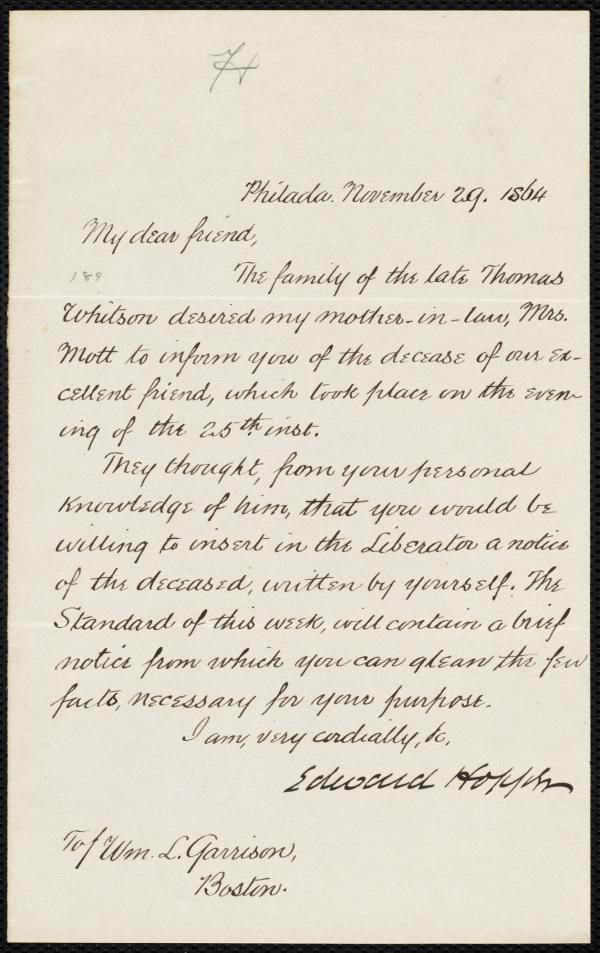 Philada. November 29. 1864
My dear friend,
189
The family of the late Thomas
Whitson desired my mother-in-law, Mrs.
Mott to inform you of the decease of our ex-
cellent friend, which took place on the even-
ing of the 25th inst.
They thought, from your personal
knowledge of him, that you would be
willing to insert in the Liberator a notice
of the deceased, written by yourself. The
Standard of this week, will contain a brief
notice from which you can glean the few
facts, necessary for your purpose.
I am, very cordially, &c,
Edward Hopper
To/ Wm. L. Garrison,
Boston.